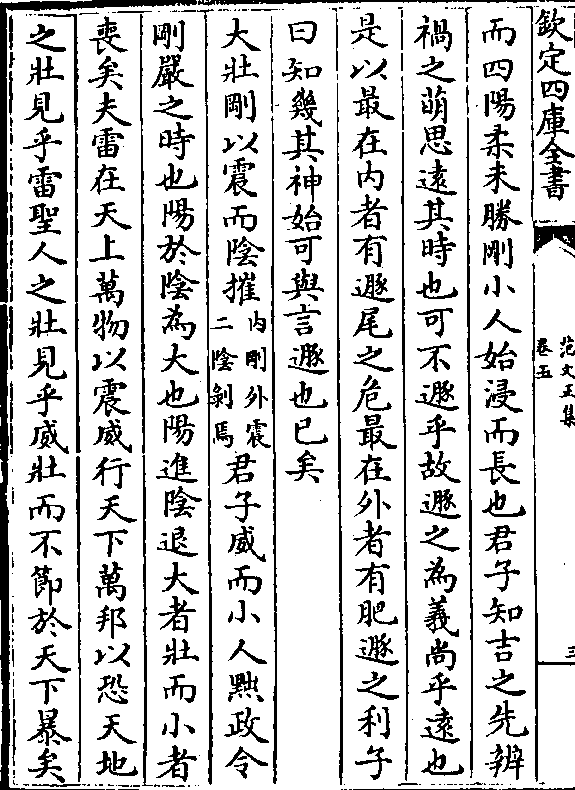 欽定四庫全書
范文正集
卷五
三
而四陽柔未勝剛小人始浸而長也君子知吉之先辨
禍之萌思遠其時也可不遯乎故遯之為義尚乎遠也
是以最在内者有遯尾之危最在外者有肥遯之利子
曰知幾其神始可與言遯也已矣
大壯剛以震而陰摧内剛外震二陰剝焉君子威而小人黜政令
剛嚴之時也陽於陰為大也陽進陰退大者壯而小者
喪矣夫雷在天上萬物以震威行天下萬邦以恐天地
之壯見乎雷聖人之壯見乎威壯而不節於天下暴矣